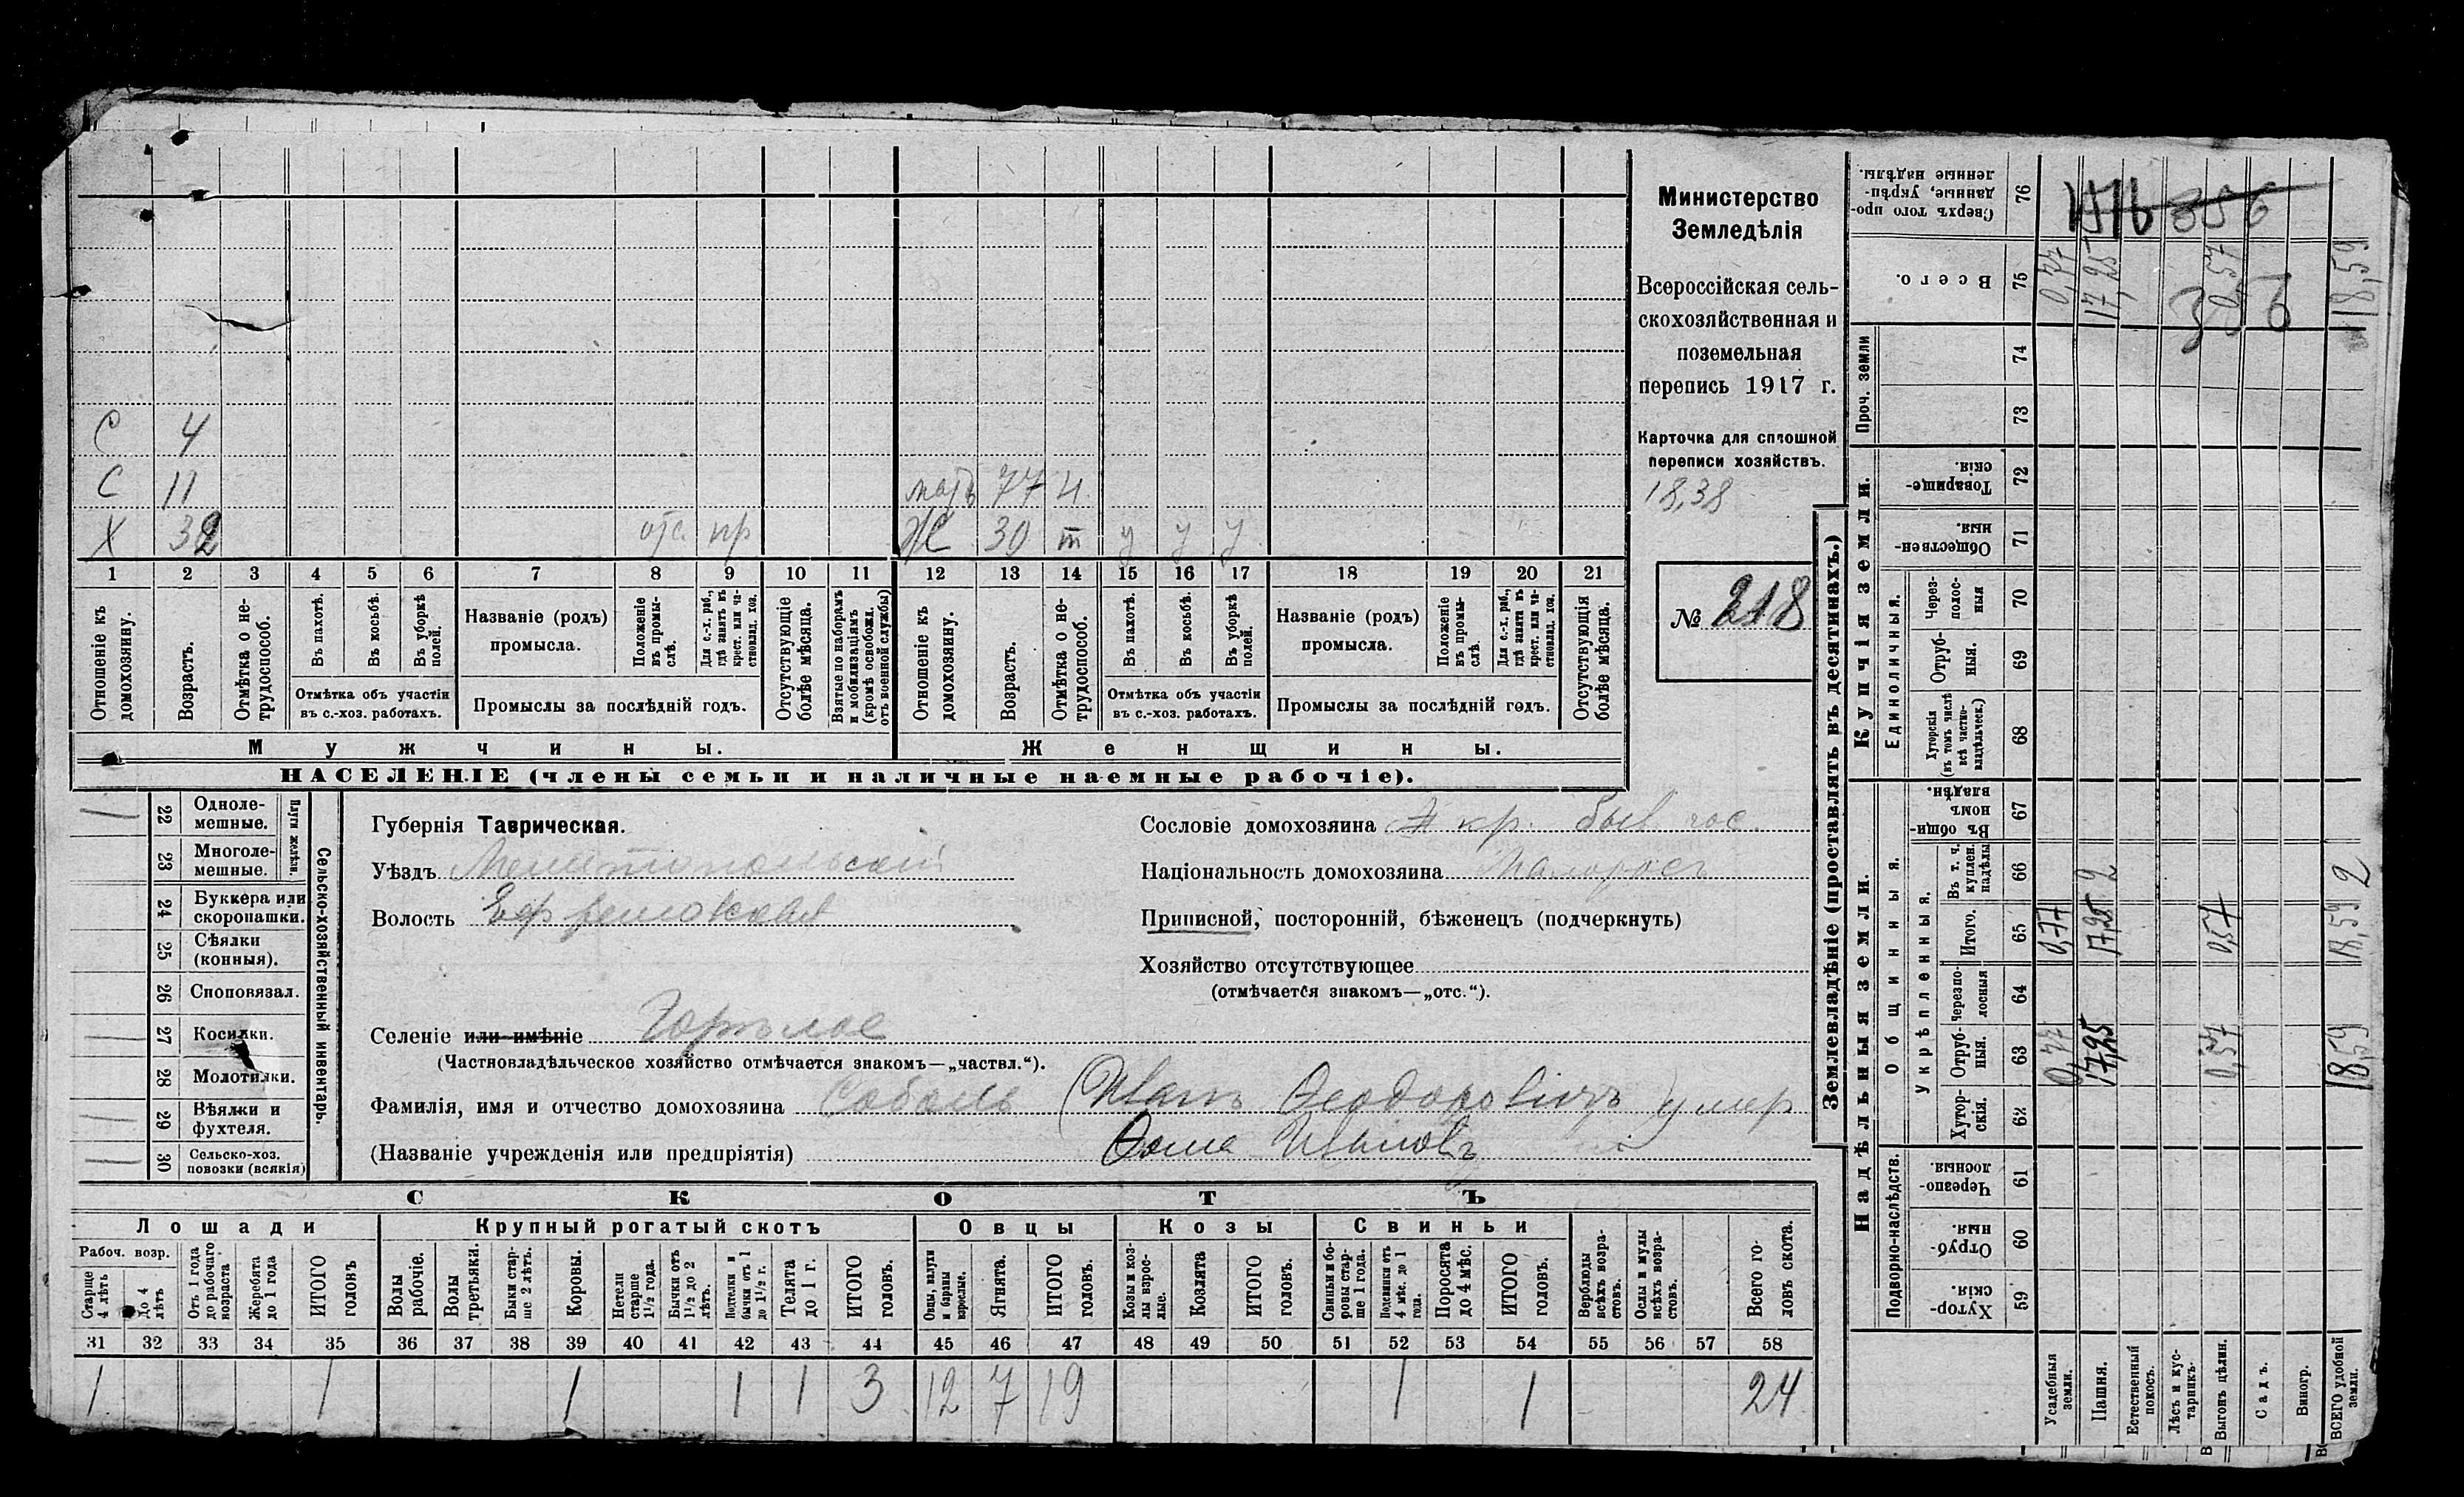 Министерство
Земледѣлія
Всероссійская сель-
скохозяйственная и
поземельная
перепись 1917 г.
Карточка для сплошной
переписи хозяйствъ.
18,38
№ 218
С 4
С 11 мать 77 н.
Х 32 отс. пр Ж 30 т у у у
1 2 3 4 5 6 7 8 9 10 11 12 13 14 15 16 17 18 19 20 21
Отношеніе къ домохозяину.
Возрастъ.
Отмѣтка о не-трудоспособ.
Въ пахотѣ.
Въ косьбѣ.
Въ уборкѣ полей.
Отмѣтка объ участіи
въ с.-хоз. работахъ.
Названіе (родъ)
промысла.
Положеніе въ промы-слѣ.
Для с.-х. раб., гдѣ занятъ въ крест. или ча-стновлад. хоз.
Промыслы за послѣдній годъ.
Отсутствующіе болѣе мѣсяца.
Взятые по наборамъ и мобилизаціямъ (кромѣ освобожд. отъ военной службы)
Отношеніе къ домохозяину.
Возрастъ.
Отмѣтка о не-трудоспособ.
Въ пахотѣ.
Въ косьбѣ.
Въ уборкѣ полей.
Отмѣтка объ участіи
въ с.-хоз. работахъ.
Названіе (родъ)
промысла.
Положеніе въ промы-слѣ.
Для с.-х. раб., гдѣ занята въ крест. или ча-стновлад. хоз.
Промыслы за послѣдній годъ.
Отсутствующія болѣе мѣсяца.
Мужчины. Женщины.
НАСЕЛЕНІЕ (члены семьи и наличные наемные рабочіе).
Сельско-хозяйственный инвентарь.
Плуги желѣзн.
22 Одноле-мешные.
23 Многоле-мешные.
24 Буккера или скоропашки.
25 Сѣялки (конныя).
26 Споповязал.
27 Косилки.
28 Молотилки.
29 Вѣялки и фухтеля.
30 Сельско-хоз. повозки (всякія)
Губернія Таврическая.
Уѣздъ Мелитопольскій
Волость Ефремовская
Селеніе или имѣніе Горѣлое
(Частновладѣльческое хозяйство отмѣчается знакомъ—„частвл.“).
Фамилія, имя и отчество домохозяина Соболь (Иванъ Ѳеодоровичъ умер
(Названіе учрежденія или предпріятія) Ѳома Ивановъ
Сословіе домохозяина кр. быв гос
Національность домохозяина Малоросъ
Приписной, посторонній, бѣженецъ (подчеркнуть)
Хозяйство отсутствующее
(отмѣчается знакомъ—„отс.“).
СКОТЪ
Лошади Крупный рогатый скотъ Овцы Козы Свиньи
Рабоч. возр.
Старше 4 лѣтъ
До 4 лѣтъ
Отъ 1 года до рабочаго возраста
Жеребята до 1 года
ИТОГО головъ
Волы рабочіе.
Волы третьяки.
Быки стар-ше 2 лѣтъ.
Коровы.
Нетели старше 1½ года.
Бычки отъ 1½ до 2 лѣтъ.
Подтелки и бычки отъ 1 до 1½ г.
Телята до 1 г.
ИТОГО головъ.
Овцы, валухи и бараны взрослые.
Ягнята.
ИТОГО головъ.
Козы и коз-лы взрос-лые.
Козлята
ИТОГО головъ.
Свиньи и бо-ровы стар-ше 1 года.
Подсвинки отъ 4 мѣс. до 1 года.
Поросята до 4 мѣс.
ИТОГО головъ.
Верблюды всѣхъ возра-стовъ.
Ослы и мулы всѣхъ возра-стовъ.
Всего го-ловъ скота.
31 32 33 34 35 36 37 38 39 40 41 42 43 44 45 46 47 48 49 50 51 52 53 54 55 56 57 58
1 1 1 1 1 3 12 7 19 1 1 24
Землевладѣніе (проставлять въ десятинахъ.)
Надѣльныя земли. Купчія земли. Проч. земли
Подворно-наслѣдств.
Общинныя.
Укрѣпленныя.
Единоличныя.
Хутор-скія. 59
Отруб-ныя. 60
Черезпо-лосныя. 61
Хутор-скія. 62
Отруб-ныя. 63
Черезпо-лосныя 64
Итого. 65
Въ т. ч. куплен. надѣлы 66
Въ общин-номъ владѣн. 67
Хуторскія (въ томъ числѣ всѣ частно-владѣльческ.) 68
Отруб-ныя. 69
Через-полос-ныя 70
Обществен-ныя. 71
Товарище-скія. 72
73
74
Всего. 75
Сверхъ того про-данные, укрѣп-ленные надѣлы. 76
Усадебныя земли. 0,77 0,77 0,77
Пашня. 17,25 17,25 2 17,25
Естественный покосъ.
Лѣсъ и кус-тарникъ.
Выгонъ цѣлин. 0,57 0,57 0,57
Садъ.
Виногр.
ВСЕГО удобной земли. 18,59 18,59 2 18,59
356